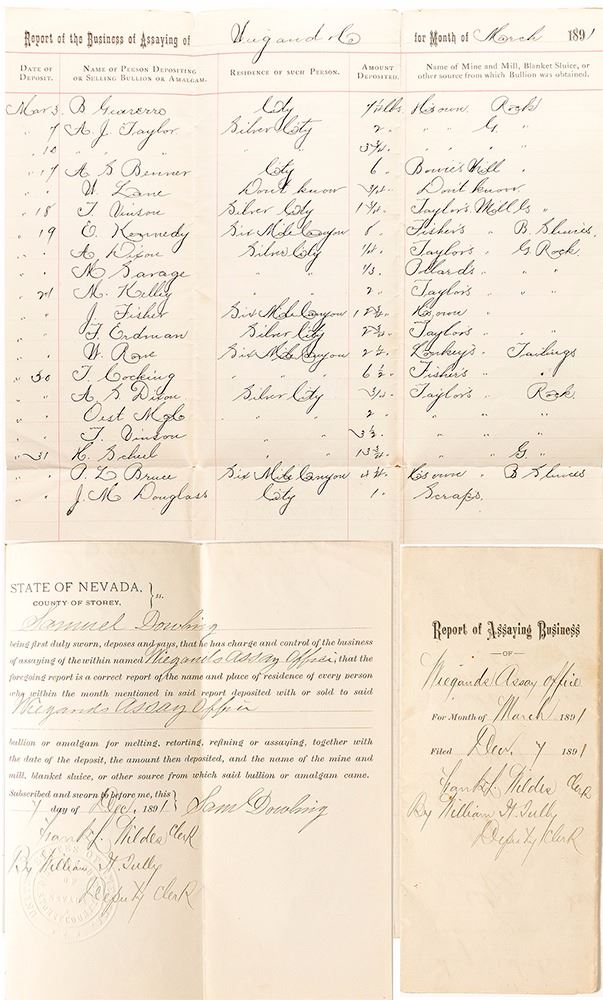 Report of the Business of Assaying of Wiegand & Co for Month of March 1891
DATE OF DEPOSIT. NAME OF PERSON DEPOSITING OR SELLING BULLION OR AMALGAM. RESIDENCE OF SUCH PERSON. AMOUNT DEPOSITED. Name of Mine and Mill, Blanket Sluice, or other source from which Bullion was obtained.
Mar 3 B City lbs His own Rock
" 7 A. J. Taylor Silver City 2 " " " G "
" 10 " " " " " 3
" 17 A S Benner City 6 " Bowies Mill "
" " W. Lane Don't know 3/4 " Don't know
" 18 T. Vinson Silver City 1 Taylors Mill G "
" 19 E. Kennedy Six Mile Canyon 8 " Fisher's " B. Sluices
" " A Dixon Silver City 1/4 " Taylors " G. Rock
" " M Savage " " 1/3 " Pollards " " "
" 21 M. Kelly " " 2 " Taylors " " "
" " J. Fisher Six Mile Canyon His own " "
" " T. Erdman Silver City 2 Taylors " "
" " W. Rowe Six Mile Canyon 2 1/2 " " Tailings
" 30 T. Cocking " " " 6 1/2 " Fisher's " "
" " A S Dixon Silver City 3/4 " Taylors Rock
" " Oest M Co " " 2 " " "
" " T. Vinson " " 3 1/2 " " "
" 31 H. Scheel " " 13 " G "
" " P. L Bruce Six Mile Canyon His own B Sluices
" " J. M Douglass City 1 " Scraps.
STATE OF NEVADA,
COUNTY OF STOREY, } ss.
Samuel Dowling
being first duly sworn, deposes and says, that he has charge and control of the business
of assaying of the within named Wiegands Assay Office, that the
foregoing report is a correct report of the name and place of residence of every person
who within the month mentioned in said report deposited with or sold to said
Wiegands Assay Office
bullion or amalgam for melting, retorting, refining or assaying, together with
the date of the deposit, the amount then deposited, and the name of the mine and
mill, blanket sluice, or other source from which said bullion or amalgam came.
Subscribed and sworn to before me, this
7 day of Dec. 1891 } Sam Dowling
Frank L Wildes Clerk
By William H. Tully
Deputy Clerk
Report of Assaying Business
—OF—
Wiegands Assay office
For Month of March 1891
Filed Dec. 7 1891
Frank L. Wildes Clk
By William H. Tully
Deputy Clerk